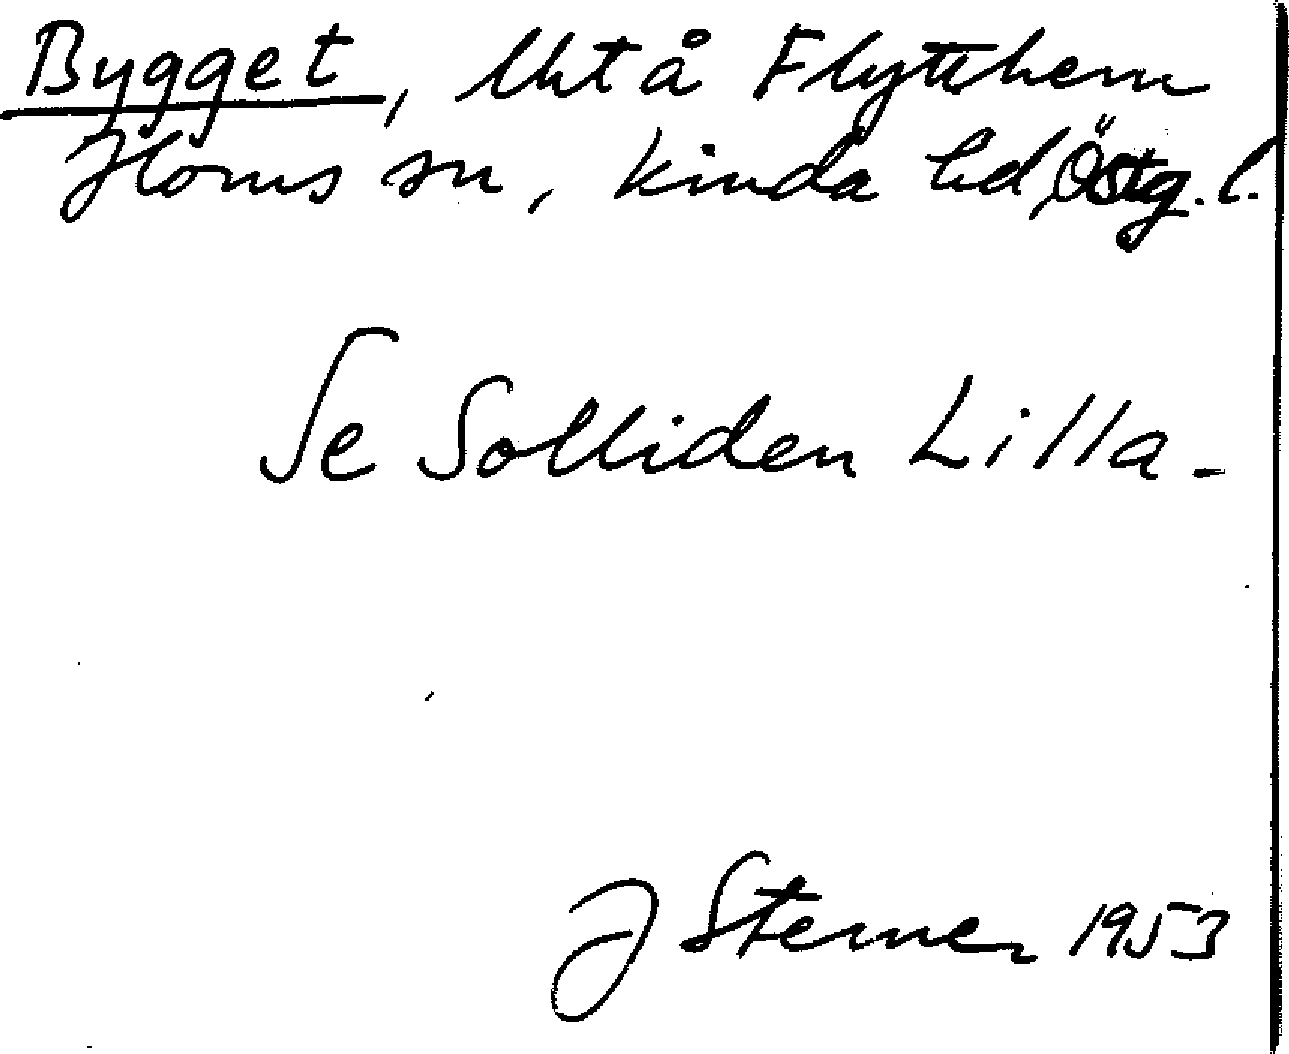 Bygget, Uht å Flytthem
Horns sn, Kinda hd, Östg. l.
Se Solliden Lilla -
J Sterner 1953